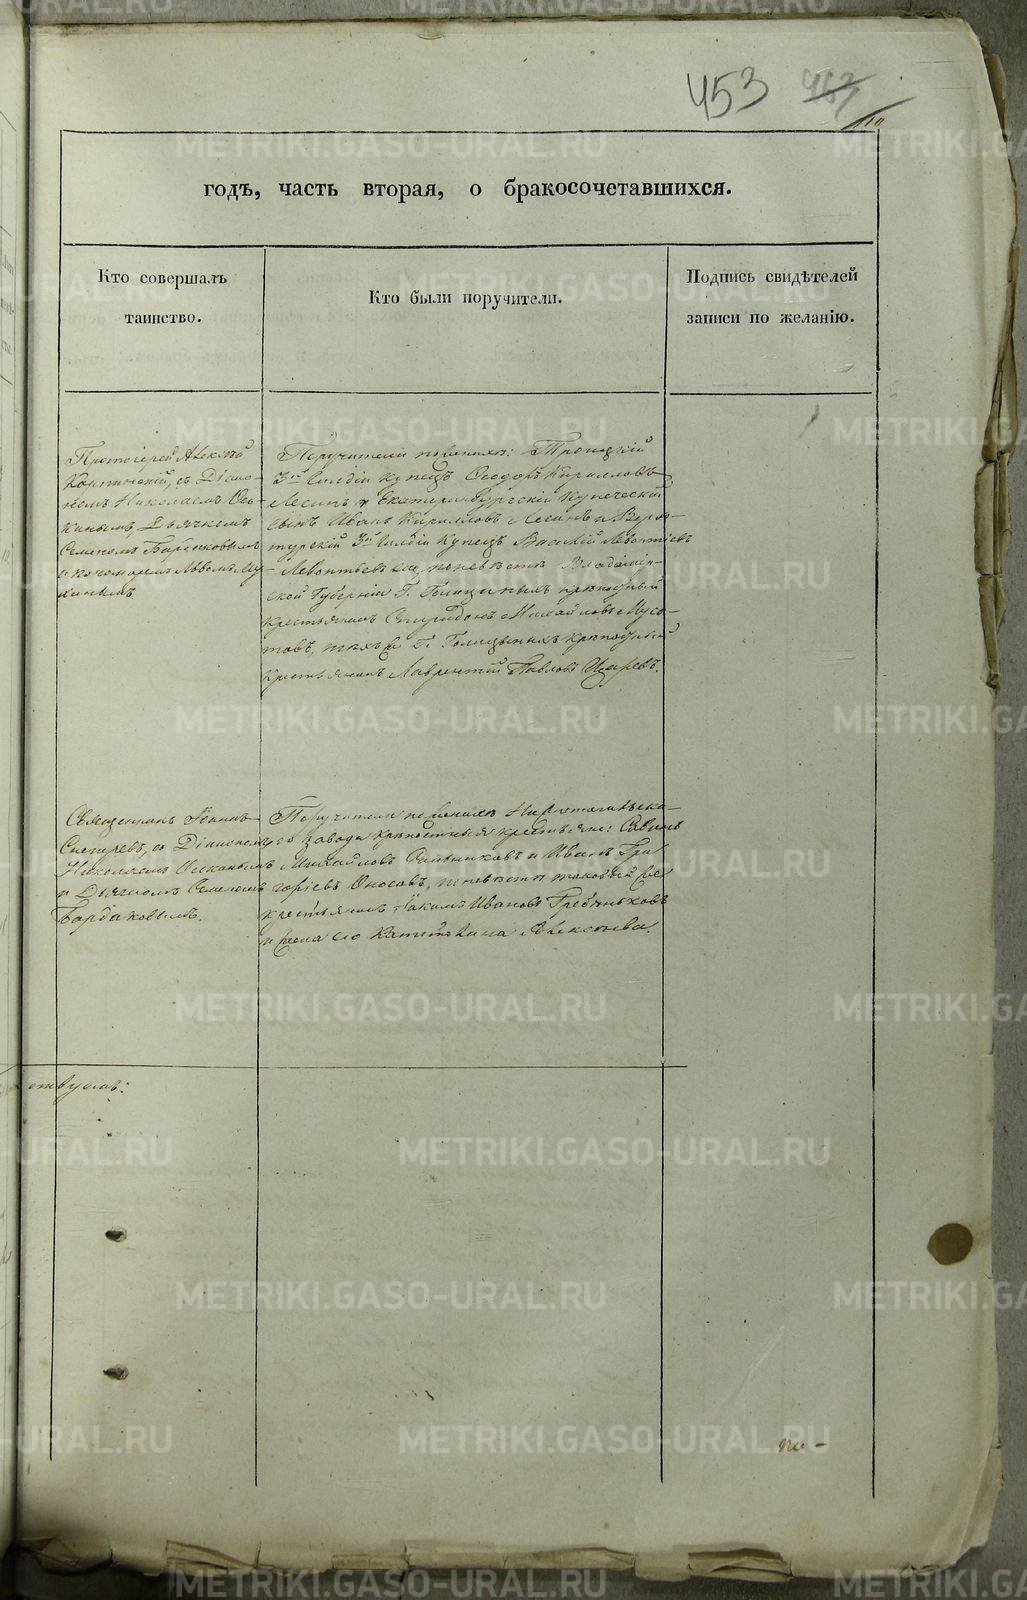 453 467
годъ, часть вторая, о бракосочетавшихся.
Кто совершалъ
таинство.
Кто были поручители.
Подпись свидѣтелей
записи по желанію.
Протоіерей Алексѣй
съ Діако-
номъ Николаемъ Ось-
кинымъ, Дьячкомъ
Семеномъ Бардаковымъ
и пономаремъ Львомъ Лу-
кинымъ
Поручители по женихѣ: Троицкій
3й Гильдіи купецъ Ѳеодоръ Кирилловъ
Лесинъ и Екатеринбургскій Купеческій
сынъ Иванъ Кирилловъ Лесинъ и Верхо-
турскій 3й Гильдіи Купецъ Василій Леонтіевъ
по невѣстѣ Владимір-
ской Губерніи Г. Голицыныхъ крѣпостный
крестьянинъ Спиридонъ Михайловъ Мусо-
товъ, тѣхъ же Г. Голицыныхъ крѣпостный
крестьянинъ Лаврентій Павловъ
Священникъ Іоаннъ
съ Діакономъ
Николаемъ Оськинымъ
и Дьячкомъ Семеномъ
Бардаковымъ.
Поручители по женихѣ Нижнетагильска-
го завода крѣпостныя крестьяне: Савинъ
Михайловъ и Иванъ Гри-
горьевъ Оносовъ, по невѣстѣ таковый же
крестьянинъ Іакимъ Ивановъ Гребеньковъ
и жена его Алексѣева.
METRIKI.GASO-URAL.RU